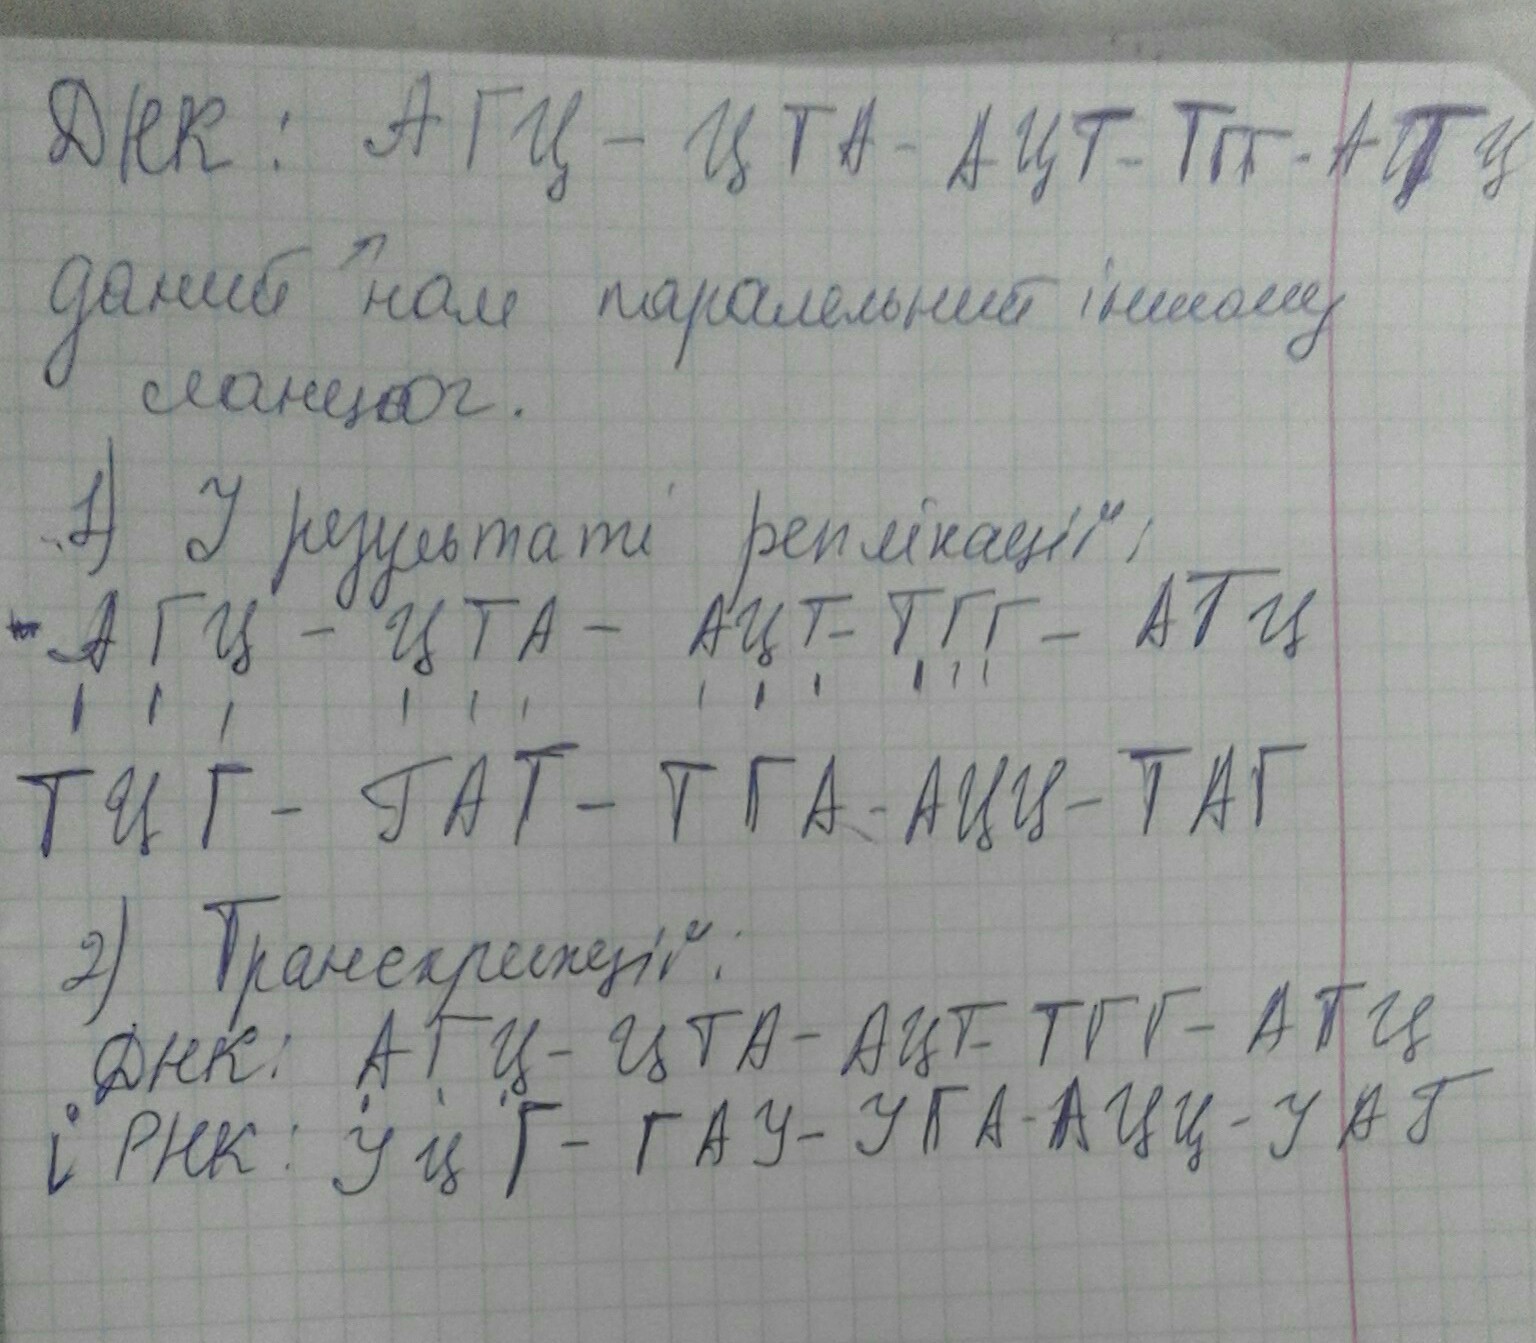 ДНК: АГЦ - ЦТА - АЦТ - ТГГ - АТЦ
даний нам паралельний іншому
ланцюг.
1) У результаті реплікації:
АГЦ - ЦТА - АЦТ - ТГГ - АТЦ
ТЦГ - ГАТ - ТГА - АЦЦ - ТАГ
2) Транскрипції:
ДНК: АГЦ - ЦТА - АЦТ - ТГГ - АТЦ
і РНК: УЦГ - ГАУ - УГА - АЦЦ - УАГ